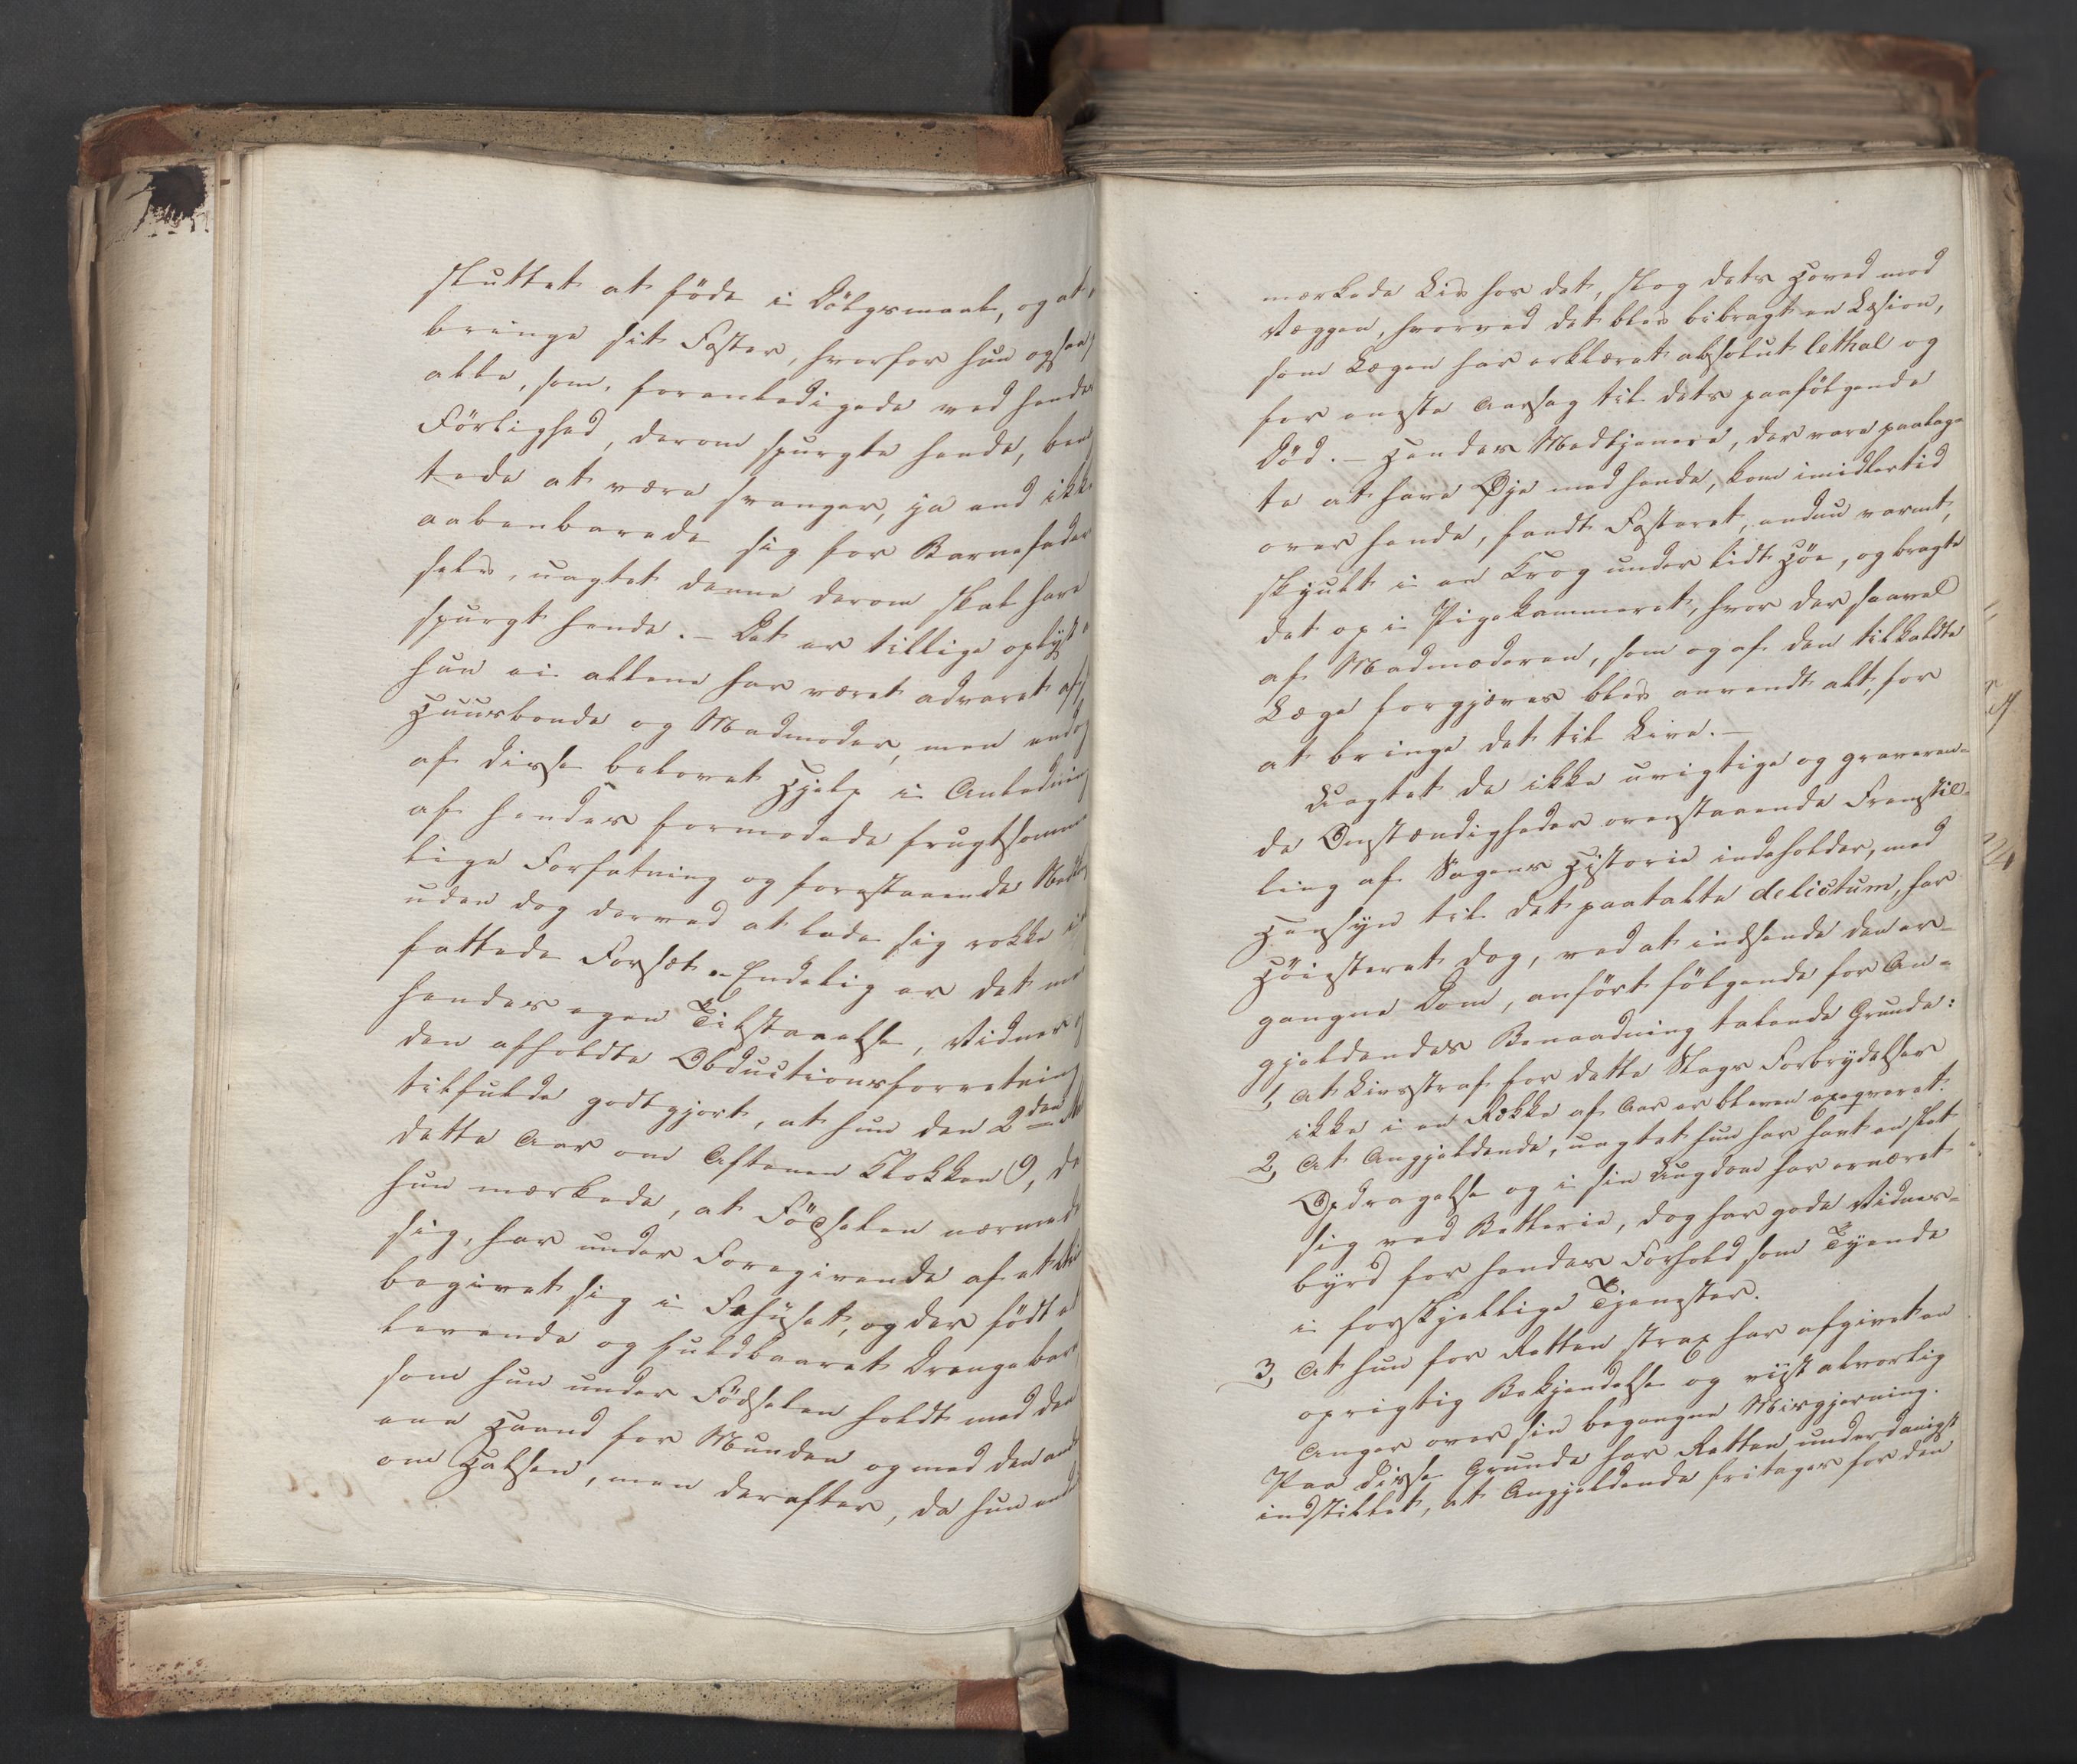 sluttet at føde i Dølgsmaal, og at
bringe sit Foster, hvorfor hun ogsaa
alle, som, foranledigede ved hendes
Førlighed, derom spurgte hende, benæg
tede at være svanger, ja end ikke
aabenbarede sig for Barnefader
selv, uagtet denne derom skal have
spurgt hende. – Det er tillige oplyst
hun ei allene har været advaret af
Huusbonde og Madmoder, men endog
af disse belovet Hjelp i Anledning
af hendes formodede frugtsomme
lige Forfatning og forestaaende Nedkomst
uden dog derved at lade sig rokke i
fattede Forsæt. – Endelig er det ved
hendes egen Tilstaaelse, Vidner og
den afholdte Obductionsforretning
tilfulde godtgjort, at hun den 2den
dette Aar om Aftenen Klokken 9, da
hun mærkede, at Fødselen nærmede
sig, har under Foregivende af et
begivet sig i Fæhuset, og der født et
levende og fuldbaaret Drengebarn
som hun under Fødselen holdt med den
ene Haand for Munden og med den anden
om Halsen, men derefter, da hun endnu
mærkede Liv hos det, slog dets Hoved mod
Væggen, hvorved det blev bibragt en Læsion,
som Lægen har erklæret absolut lethal og
for eneste Aarsag til dets paafølgende
Død. – Hendes Medtjenere, der vare paalag-
te at have Øje med hende, kom imidlertid
over hende, fandt Fosteret, endnu varmt,
skjult i en Krog under lidt Høe, og bragte
det op i Pigekammeret, hvor der saavel
af Madmoderen, som og af den tilkaldte
Læge forgjæves blev anvendt alt, for
at bringe det til Live. –
Uagtet de ikke uvigtige og graveren-
de Omstændigheder ovenstaaende Fremstil-
ling af Sagens Historie indeholder, med
Hensyn til det paatalte delictum, har
Høiesteret dog, ved at indsende den er-
gangne Dom, anført følgende for An-
gjeldendes Benaadning talende Grunde:
1, At Livsstraf for dette Slags Forbrydelser
ikke i en Række af Aar er bleven exeqveret.
2, At Angjeldende, uagtet hun har havt en slet
Opdragelse og i sin Ungdom har ernæret
sig ved Betlerie, dog har gode Vidnes-
byrd for hendes Forhold som Tyende
i forskjellige Tjenester.
3, At hun for Retten strax har afgivet en
oprigtig Bekjendelse og viist alvorlig
Anger over sin begangne Misgjerning.
Paa disse Grunde har Retten underdanigst
indstillet, at Angjeldende fritages for den